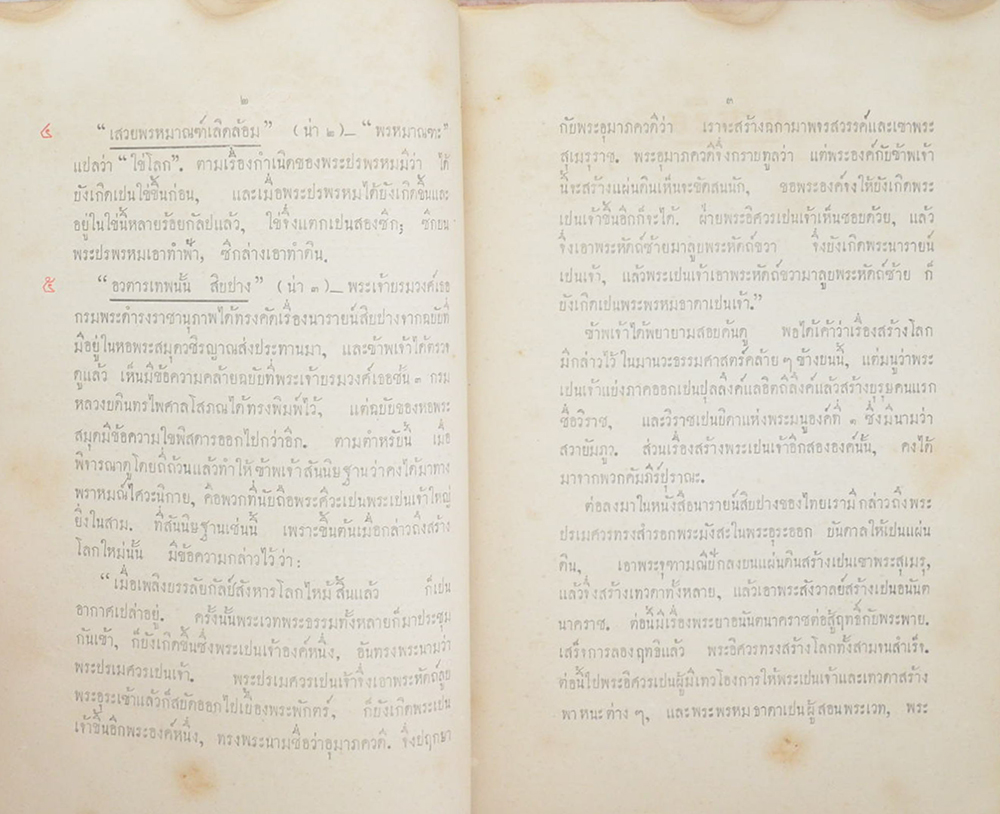 ๒
๔ “เสวยพรหมาณฑ์เลิดล้อม” (น่า ๒)_ “พรหมาณฑะ”
แปลว่า “ไข่โลก”. ตามเรื่องกำเนิดของพระปรพรหมมีว่า ได้
บังเกิดเปนไข่ขึ้นก่อน, และเมื่อพระปรพรหมได้บังเกิดขึ้นและ
อยู่ในไข่นี้หลายร้อยกัลป์แล้ว, ไข่จึ่งแตกเปนสองซีก; ซีกบน
พระปรพรหมเอาทำฟ้า, ซีกล่างเอาทำดิน.
๕ “อวตารเทพนั้น สิบปาง” (น่า ๓)_ พระเจ้าบรมวงศ์เธอ
กรมพระดำรงราชานุภาพได้ทรงคัดเรื่องนารายน์สิบปางจากฉบับที่
มีอยู่ในหอพระสมุดวชิรญาณส่งประทานมา, และข้าพเจ้าได้ตรวจ
ดูแล้ว เห็นมีข้อความคล้ายฉบับที่พระเจ้าบรมวงศ์เธอชั้น ๓ กรม
หลวงบดินทรไพศาลโสภณได้ทรงพิมพ์ไว้, แต่ฉบับของหอพระ
สมุดมีข้อความไขพิสดารออกไปกว่าอีก. ตามตำหรับนี้ เมื่อ
พิจารณาดูโดยถี่ถ้วนแล้วทำให้ข้าพเจ้าสันนิษฐานว่าคงได้มาทาง
พราหมณ์ไศวะนิกาย, คือพวกที่นับถือพระศิวะเปนพระเปนเจ้าใหญ่
ยิ่งในสาม. ที่สันนิษฐานเช่นนี้ เพราะขึ้นต้นเมื่อกล่าวถึงสร้าง
โลกใหม่นั้น มีข้อความกล่าวไว้ว่า:
“เมื่อเพลิงบรรลัยกัลป์สังหารโลกไหม้สิ้นแล้ว ก็เปน
อากาศเปล่าอยู่. ครั้งนั้นพระเวทพระธรรมทั้งหลายก็มาประชุม
กันเข้า, ก็บังเกิดขึ้นซึ่งพระเปนเจ้าองค์หนึ่ง, อันทรงพระนามว่า
พระปรเมศวรเปนเจ้า. พระปรเมศวรเปนเจ้าจึ่งเอาพระหัดถ์ลูบ
พระอุระเข้าแล้วก็สบัดออกไปเบื้องพระพักตร์, ก็บังเกิดพระเปน
เจ้าขึ้นอีกพระองค์หนึ่ง, ทรงพระนามชื่อว่าอุมาภควดี. จึ่งปฤกษา
๓
กับพระอุมาภควดีว่า เราจะสร้างฉกามาพจรสวรรค์และเขาพระ
สุเมรุราช. พระอุมาภควดีจึ่งกราบทูลว่า แต่พระองค์กับข้าพเจ้า
นี้จะสร้างแผ่นดินเห็นจะขัดสนนัก, ขอพระองค์จงให้บังเกิดพระ
เปนเจ้าขึ้นอีกก็จะได้. ฝ่ายพระอิศวรเปนเจ้าเห็นชอบด้วย, แล้ว
จึ่งเอาพระหัดถ์ซ้ายมาลูบพระหัดถ์ขวา จึ่งบังเกิดพระนารายน์
เปนเจ้า, แล้วพระเปนเจ้าเอาพระหัดถ์ขวามาลูบพระหัดถ์ซ้าย ก็
บังเกิดเปนพระพรหมธาดาเปนเจ้า.”
ข้าพเจ้าได้พยายามสอบค้นดู พอได้เค้าว่าเรื่องสร้างโลก
มีกล่าวไว้ในมานวะธรรมศาสตร์คล้าย ๆ ข้างบนนี้, แต่มนูว่าพระ
เปนเจ้าแบ่งภาคออกเปนปุลลึงค์และอิตถีลึงค์แล้วสร้างบุรุษคนแรก
ชื่อวิราช, และวิราชเปนบิดาแห่งพระมนูองค์ที่ ๑ ซึ่งมีนามว่า
สวายัมภูว. ส่วนเรื่องสร้างพระเปนเจ้าอีกสององค์นั้น, คงได้
มาจากพวกคัมภีร์ปุราณะ.
ต่อลงมาในหนังสือนารายน์สิบปางของไทยเรามีกล่าวถึงพระ
ปรเมศวรทรงสำรอกพระมังสะในพระอุระออก บันดาลให้เปนแผ่น
ดิน, เอาพระจุฑามณีปักลงบนแผ่นดินสร้างเปนเขาพระสุเมรุ,
แล้วจึ่งสร้างเทวดาทั้งหลาย, แล้วเอาพระสังวาลย์สร้างเปนอนันต
นาคราช. ต่อนี้มีเรื่องพระยาอนันตนาคราชต่อสู้ฤทธิ์กับพระพาย.
เสร็จการลองฤทธิแล้ว พระอิศวรทรงสร้างโลกทั้งสามจนสำเร็จ.
ต่อนี้ไปพระอิศวรเปนผู้มีเทวโองการให้พระเปนเจ้าและเทวดาสร้าง
พาหนะต่าง ๆ, และพระพรหมธาดาเปนผู้สอนพระเวท, พระ